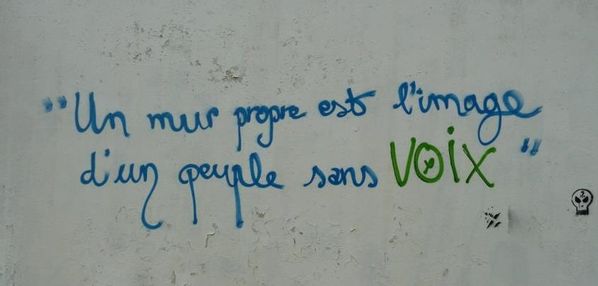 "Un mur propre est l'image
d'un peuple sans VOiX"